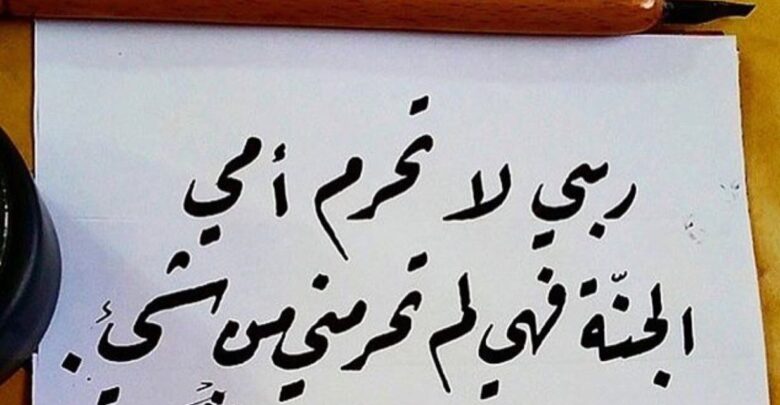 ربي لا تحرم أمي
الجنّة فهي لم تحرمني من شيئ .